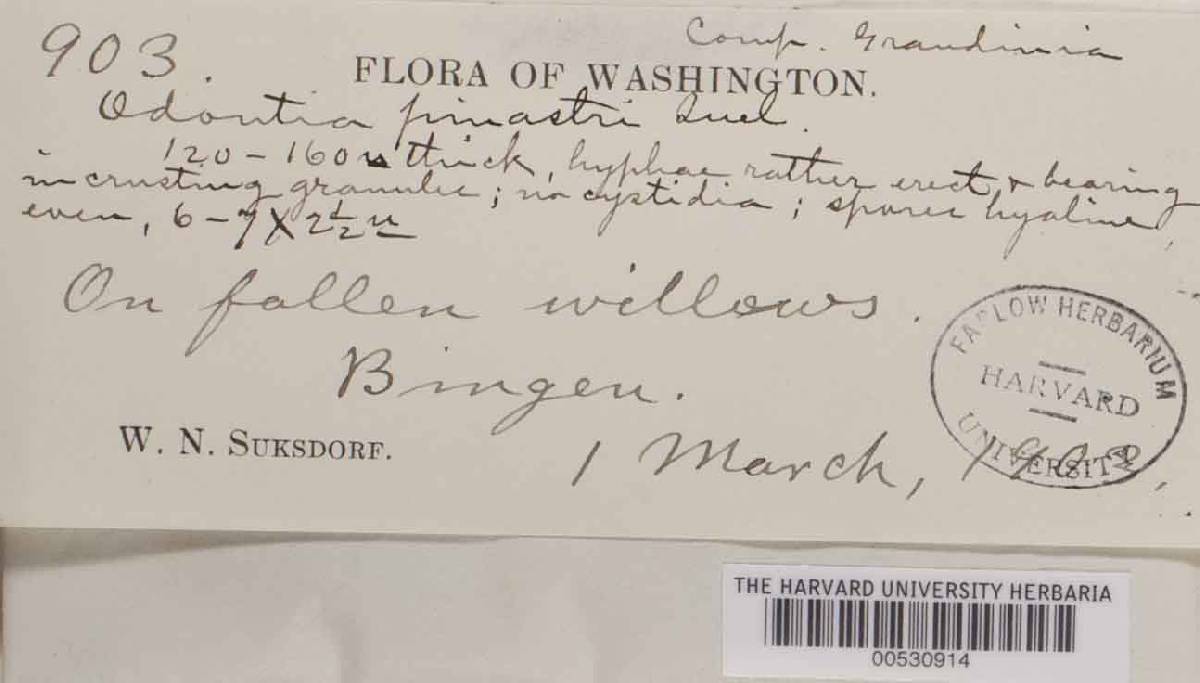 Comp. Grandinia
903.
FLORA OF WASHINGTON.
Odontia pinastri Quel.
120-160 u thick, hyphae rather erect, & bearing
incrusting granules; no cystidia; spores hyaline,
even, 6-7 X 2½ u
On fallen willows.
Bingen.
W. N. SUKSDORF.
1 March,
FARLOW HERBARIUM
HARVARD
UNIVERSITY
THE HARVARD UNIVERSITY HERBARIA
00530914